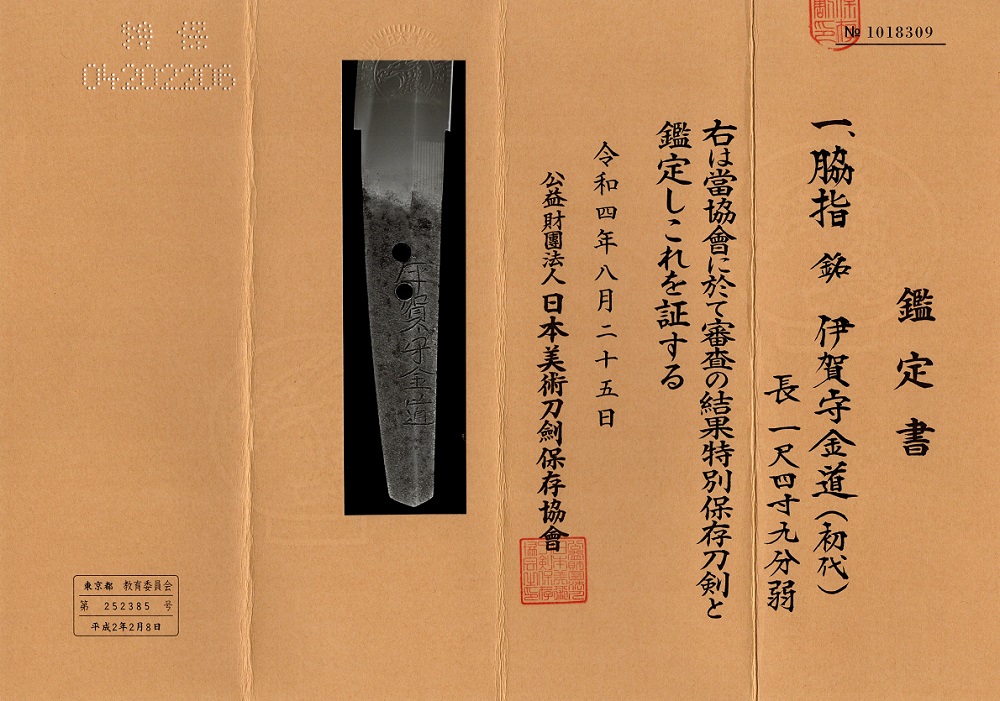 № 1018309
鑑定書
一、脇指 銘 伊賀守金道(初代)
長 一尺四寸九分弱
右は當協會に於て審査の結果特別保存刀剣と
鑑定しこれを証する
令和四年八月二十五日
公益財團法人 日本美術刀劍保存協會
伊賀守金道
04202206
東京都 教育委員会
第 252385 号
平成2年2月8日